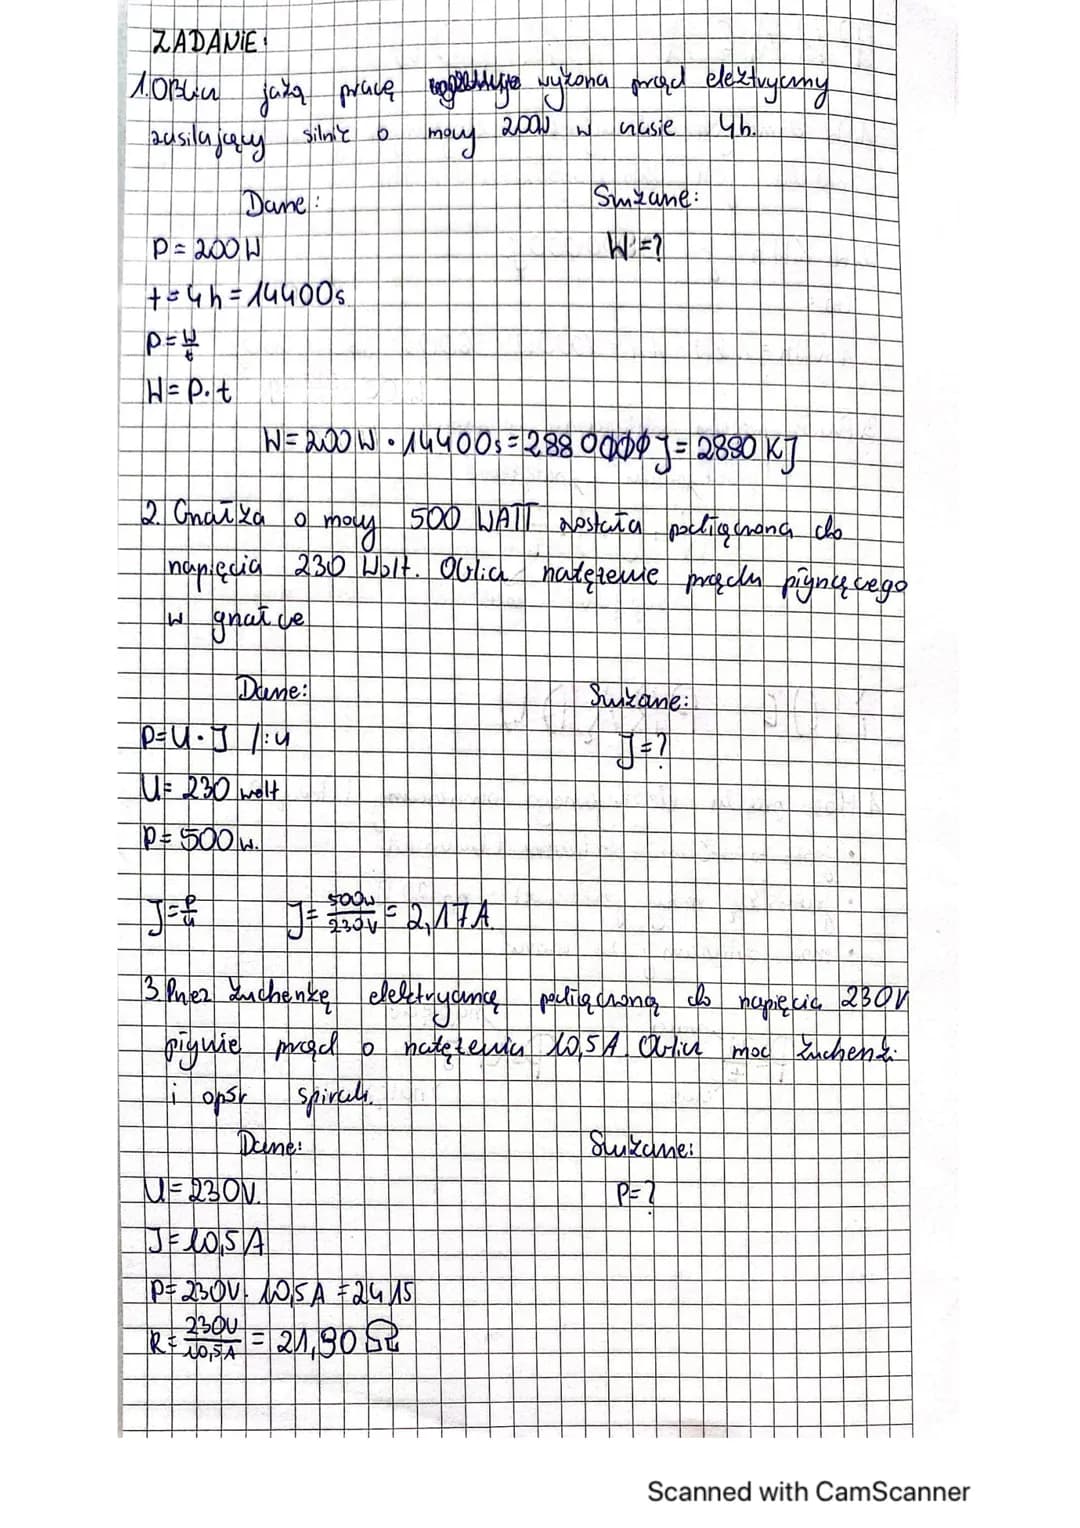 ZADANIE:
1. Oblicz jaką pracę wykona prąd elektryczny
zasilający silnik o mocy 200W w czasie 4h.
Dane: Szukane:
P = 200W W=?
t = 4h = 14400s
P = W/t
W = P·t
W = 200W · 14400s = 2880000J = 2880 KJ
2. Grzałka o mocy 500 WATT została podłączona do
napięcia 230 Wolt. Oblicz natężenie prądu płynącego
w grzałce
Dane: Szukane:
P=U·J /:U J=?
U= 230 wolt
P= 500w.
J=P/U J= 500w/230V = 2,17A.
3. Przez kuchenkę elektryczną podłączoną do napięcia 230V
płynie prąd o natężeniu 10,5A. Oblicz moc kuchenki
i opór spirali.
Dane: Szukane:
U=230V. P=?
J=10,5A
P=230V · 10,5A = 2415
R= 230V/10,5A = 21,90 Ω
Scanned with CamScanner